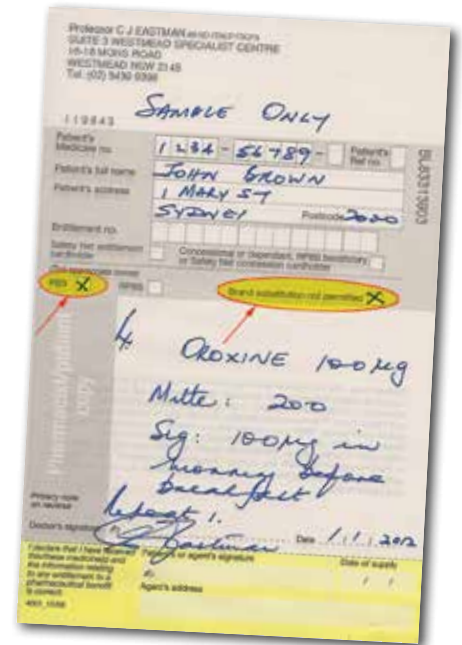 Professor C J EASTMAN
SUITE 3 WESTMEAD SPECIALIST CENTRE
16-18 MONS ROAD
WESTMEAD NSW 2145
Tel: (02)
SAMPLE ONLY
119843
Patient's
Medicare no.
1234-56789-
Patient's
Ref no.
BL8313903
Patient's full name
JOHN BROWN
Patient's address
1 MARY ST
SYDNEY
Postcode 2020
Entitlement no.
Safety Net entitlement
cardholder
Concessional or dependant, RPBS beneficiary
or Safety Net concession cardholder
PBS X
RPBS
Brand substitution not permitted X
Pharmacist/patient
copy
OROXINE 100µg
Mitte: 200
Sig: 100µg in
morning before
breakfast
Repeat 1.
Privacy note
on reverse
Doctor's signature
Eastman
Date 1.1.2012
I declare that I have received
this/these medicine(s) and
the information relating
to any entitlement to a
pharmaceutical benefit
is correct.
Patient's or agent's signature
Date of supply
/ /
Agent's address